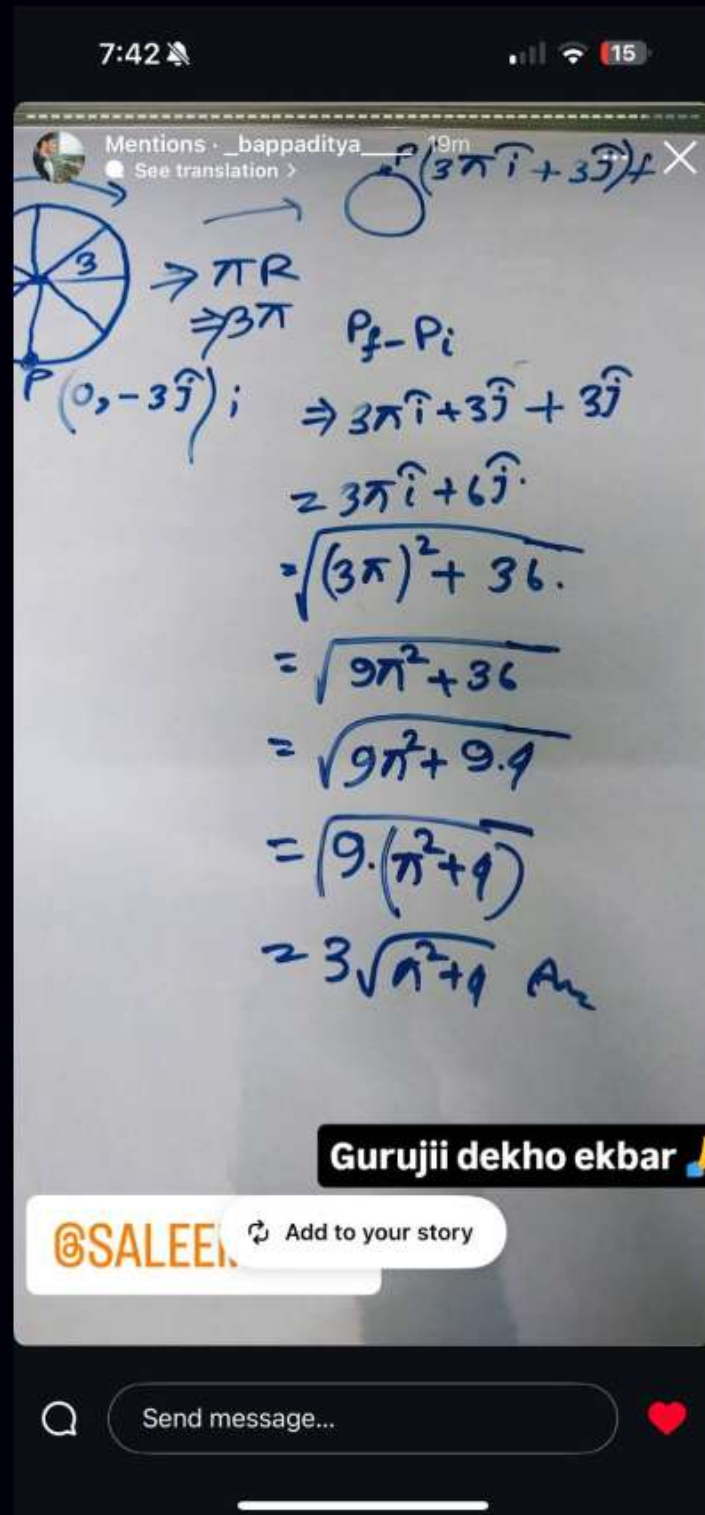 7:42
15
Mentions · _bappaditya____ 19m
See translation >
P(3πî + 3ĵ)f
3
⇒ πR
⇒ 3π
Pf - Pi
P (0, -3ĵ) i
⇒ 3πî + 3ĵ + 3ĵ
= 3πî + 6ĵ.
= √(3π)² + 36.
= √9π² + 36
= √9π² + 9.4
= √9.(π² + 4)
= 3√π² + 4 Ans
Gurujii dekho ekbar
Add to your story
Send message...